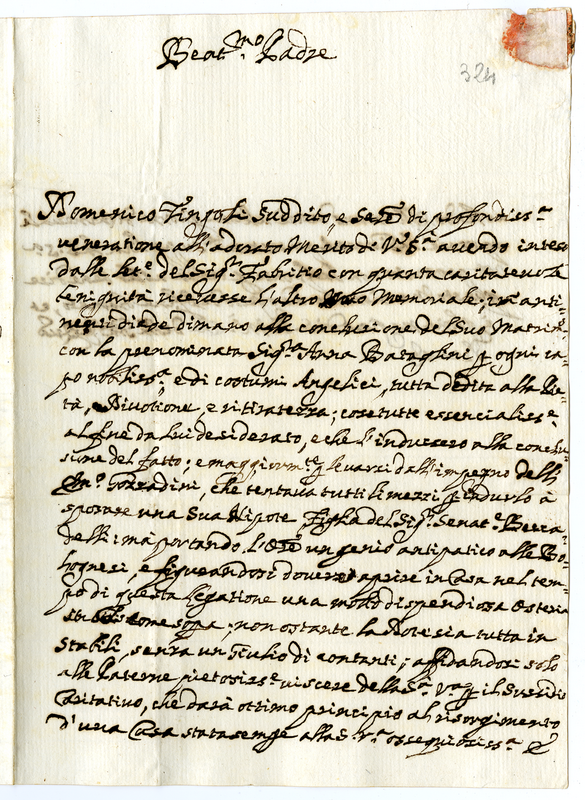 Beat.mo Padre
324
Domenico Tingoli Suddito, e Se di profondiss.a
veneratione all'adorato Merito di V.S.a avendo inteso
dalle let.e del Sig.r Fabritio con quanta caritatevole
benignità ricevesse l'altro suo Memoriale; anti=
diede di mano alla conclusione del Suo Matri=
con la prenominata Sig.ra Anna Bataglini p ogni ca=
po nobiliss.a e di costumi Angelici, tutta dedita alla Pie=
tà, Divotione, e ritiratezza; cose tutte essencialiss.e
al fine da lui desiderato, e che l'indussero alla conclu=
sione del fatto; e maggiorm.te p levarsi dall'impegno dell'
Gozzadini, che tentava tutti li mezzi p indurlo à
sposare una Sua Nipote Figlia del Sig.r Senat.e
delli; mà portando l' un genio antipatico alle Bo=
lognesi, e figurandosi dover aprire in Casa nel tem=
po di questa legatione una molto dispendiosa Osteria
come sopa; non ostante la Dote sia tutta in
stabili, senza un Giulio di contanti; affidandosi solo
alle Paterne pietosiss.e viscere della S.a V.a p il Sussidio
Caritativo, che darà ottimo principio al risorgimento
d'una Casa stata sempe alla S. V.a ossequiosiss.a &